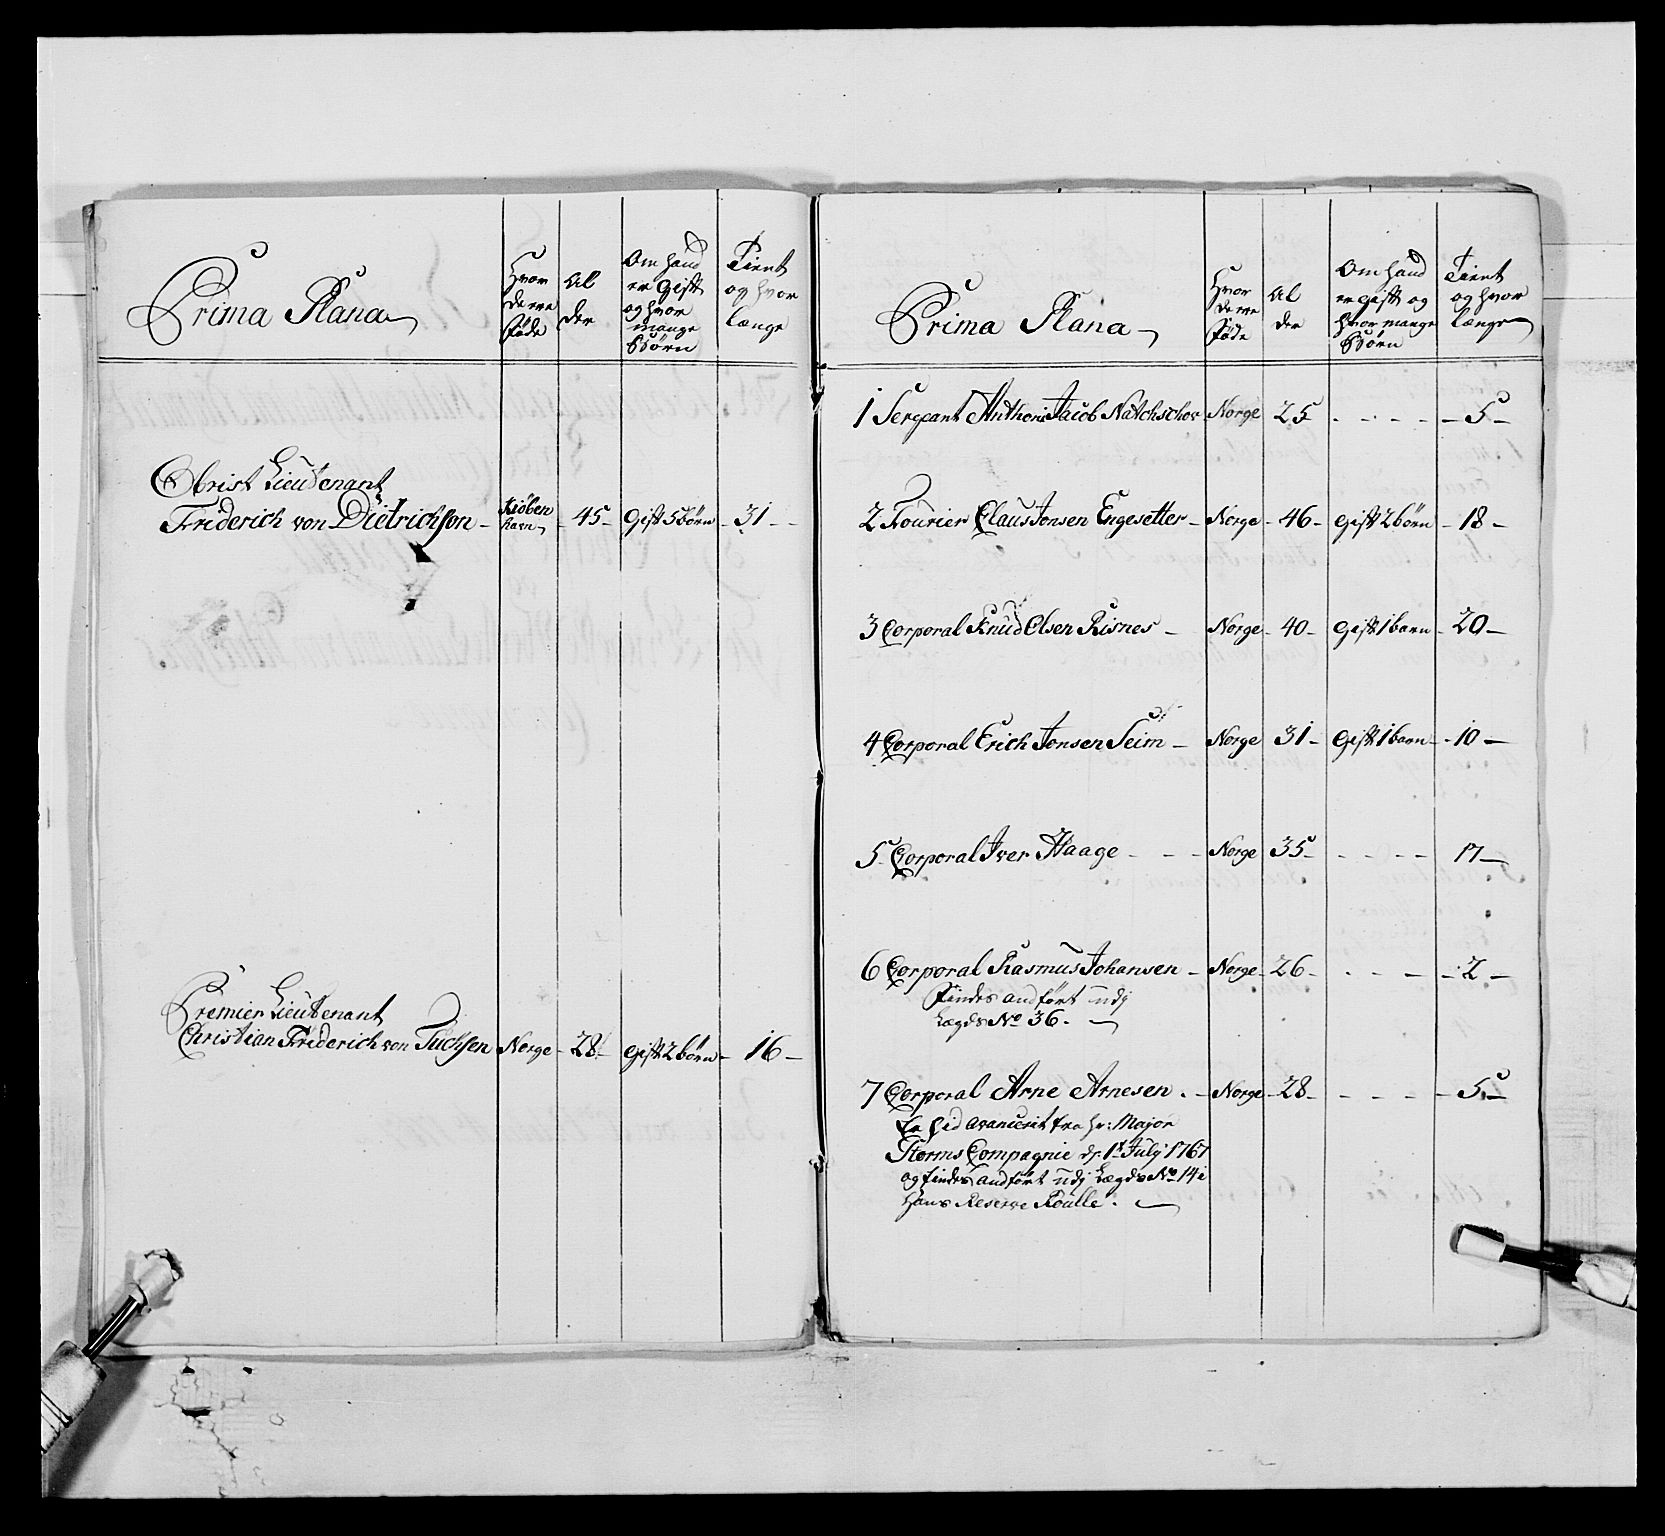 Prima Plana
Hvor de ere föde
Al der
Om hand er gift og hvor mange Börn
Tient og hvor længe
Obrist Lieutenant
Friderich von Dietrichson - Kiöben havn - 45 - gift 5 börn - 31 -
Premier Lieutenant
Christian Friderich von Tuchsen Norge - 28 - gift 2 börn - 16 -
Prima Plana
Hvor de ere föde
Al der
Om hand er gift og hvor mange Börn
Tient og hvor længe
1 Sergeant Anthoni Jacob Natchschov Norge 25 - - - - - 5 -
2 Fourier Claus Jonsen Engesetter - Norge - 46 - gift 2 börn - 18 -
3 Corporal Knud Olsen Risnes - Norge - 40 - gift 1 barn - 20 -
4 Corporal Erich Jonsen Seim - Norge 31 - gift 1 barn - 10 -
5 Corporal Iver Haage - - - Norge 35 - - - - - 17 -
6 Corporal Rasmus Johansen - Norge - 26 - - - - - 2 -
findes andfört udj
Lægds No 36. -
7 Corporal Arne Arnesen. - Norge - 28 - - - - - 5 -
Er hid avancerit fra hr: Major
Storms Compagnie d. 1t July 1767
og findes andfört udj Lægds No 14 i
hans Reserve Roulle. -